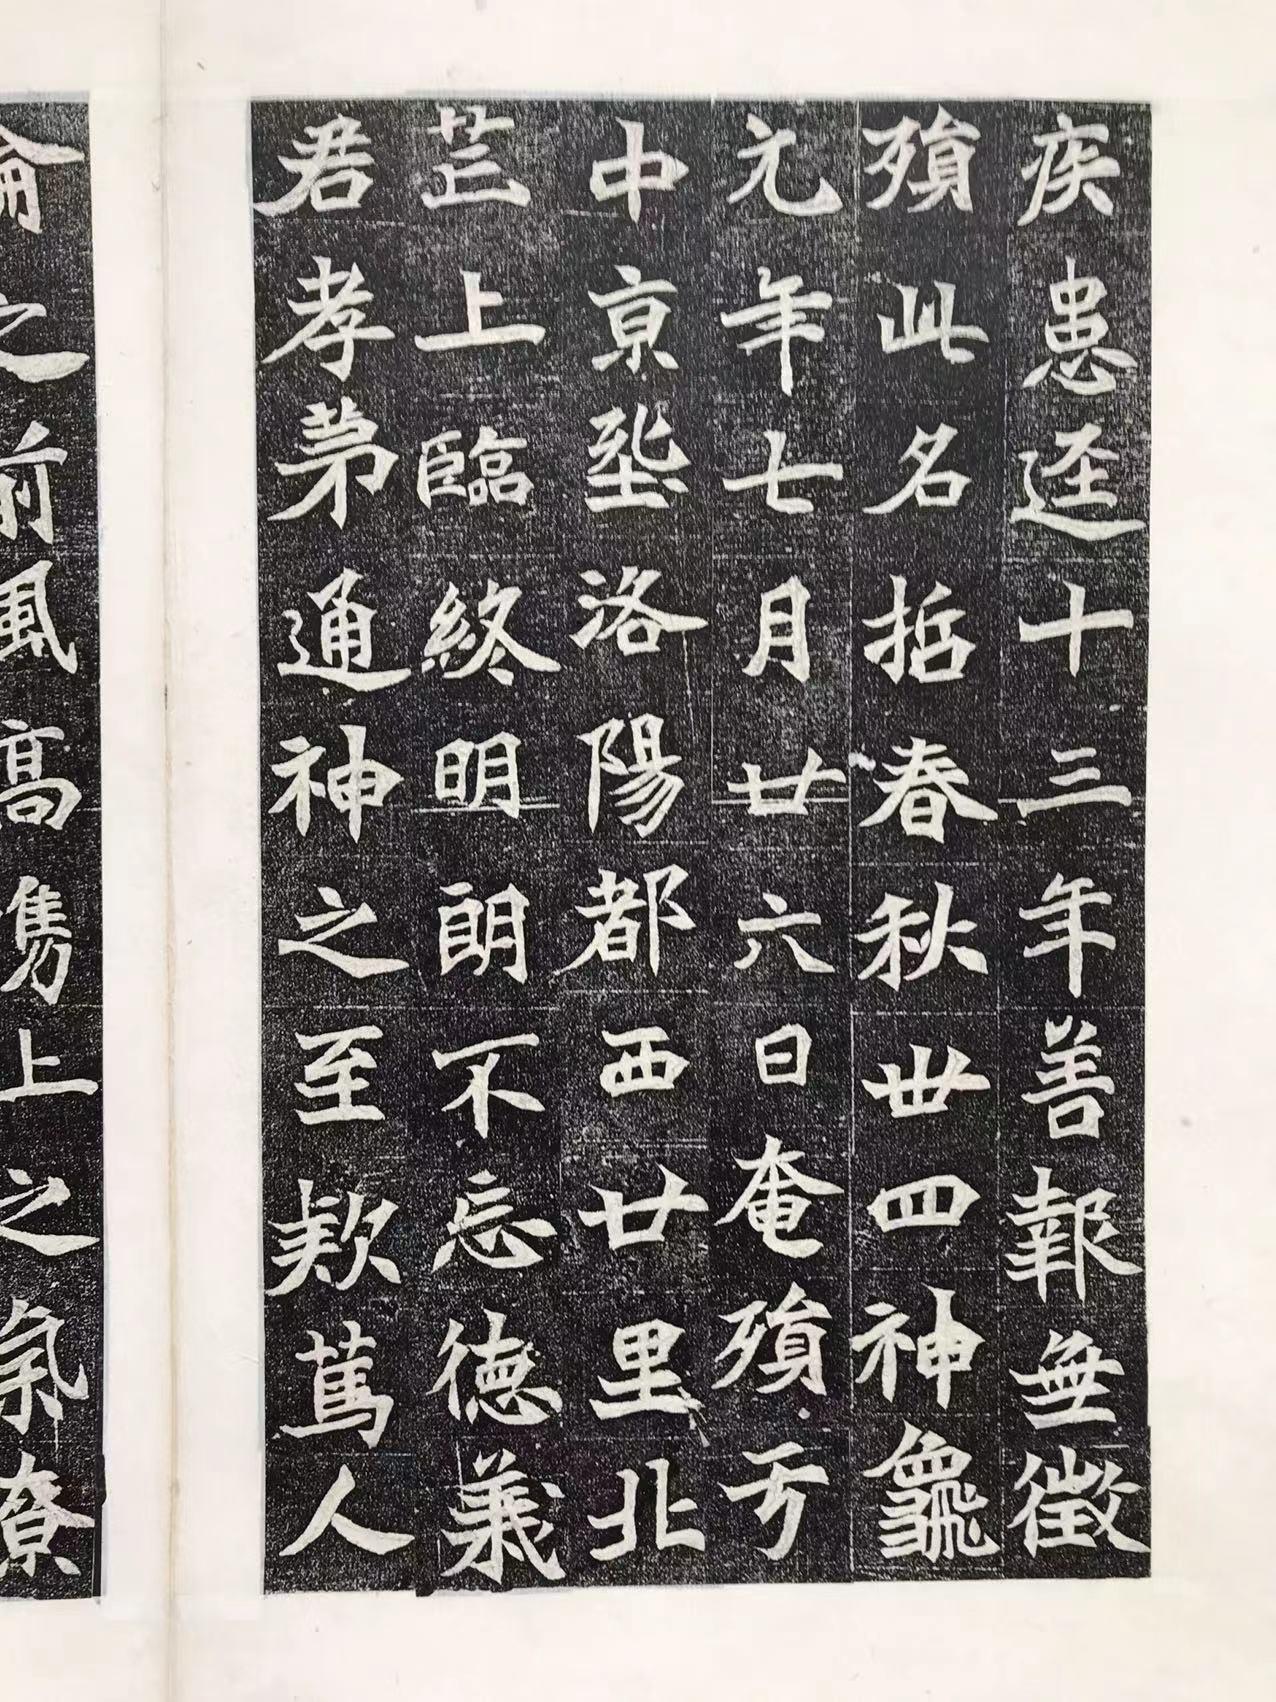 疾患迳十三年善報無徵
殞此名哲春秋丗四神龜
元年七月廿六日奄殞亏
中亰洛陽都西廿里北
芒上臨終明朗不忘德義
君孝苐通神之至欵篤人
之前風高儁上之氣寮